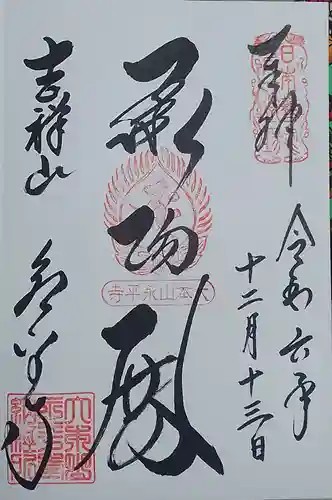 奉拝
令和六年
十二月十三日
承陽殿
大本山永平寺
吉祥山
永平寺